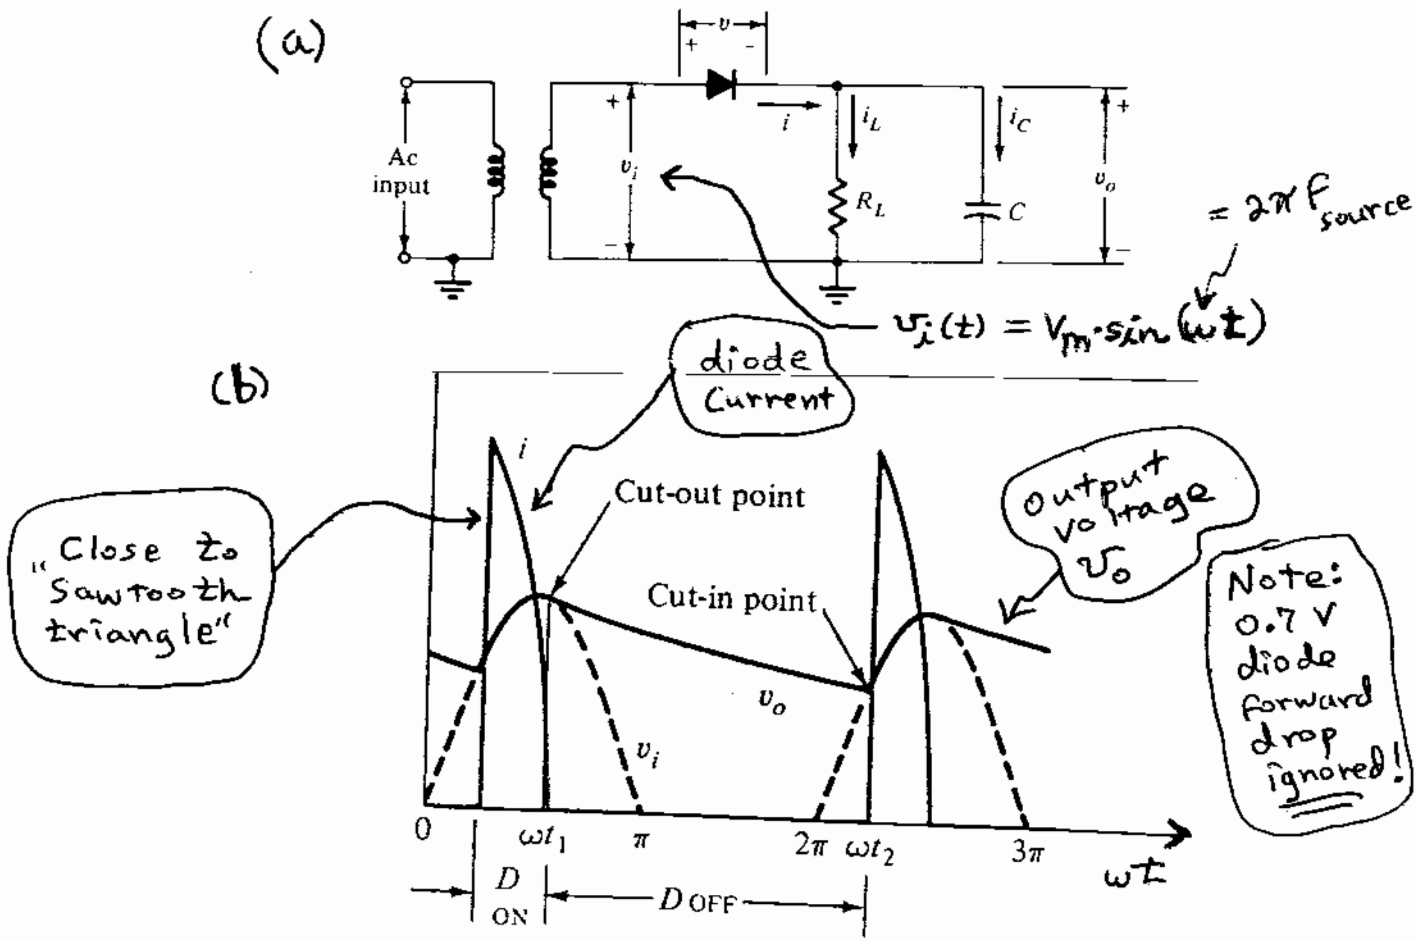 (a)
+ v -
Ac
input
+
v_i
-
i
i_L
R_L
i_C
C
+
v_o
-
= 2π f_source
v_i(t) = V_m·sin(ωt)
(b)
diode
Current
i
Cut-out point
Cut-in point
"Close to
Sawtooth
triangle"
output
voltage
v_o
Note:
0.7 V
diode
forward
drop
ignored!
v_o
v_i
0 ωt_1 π 2π ωt_2 3π
ωt
D
ON
D OFF